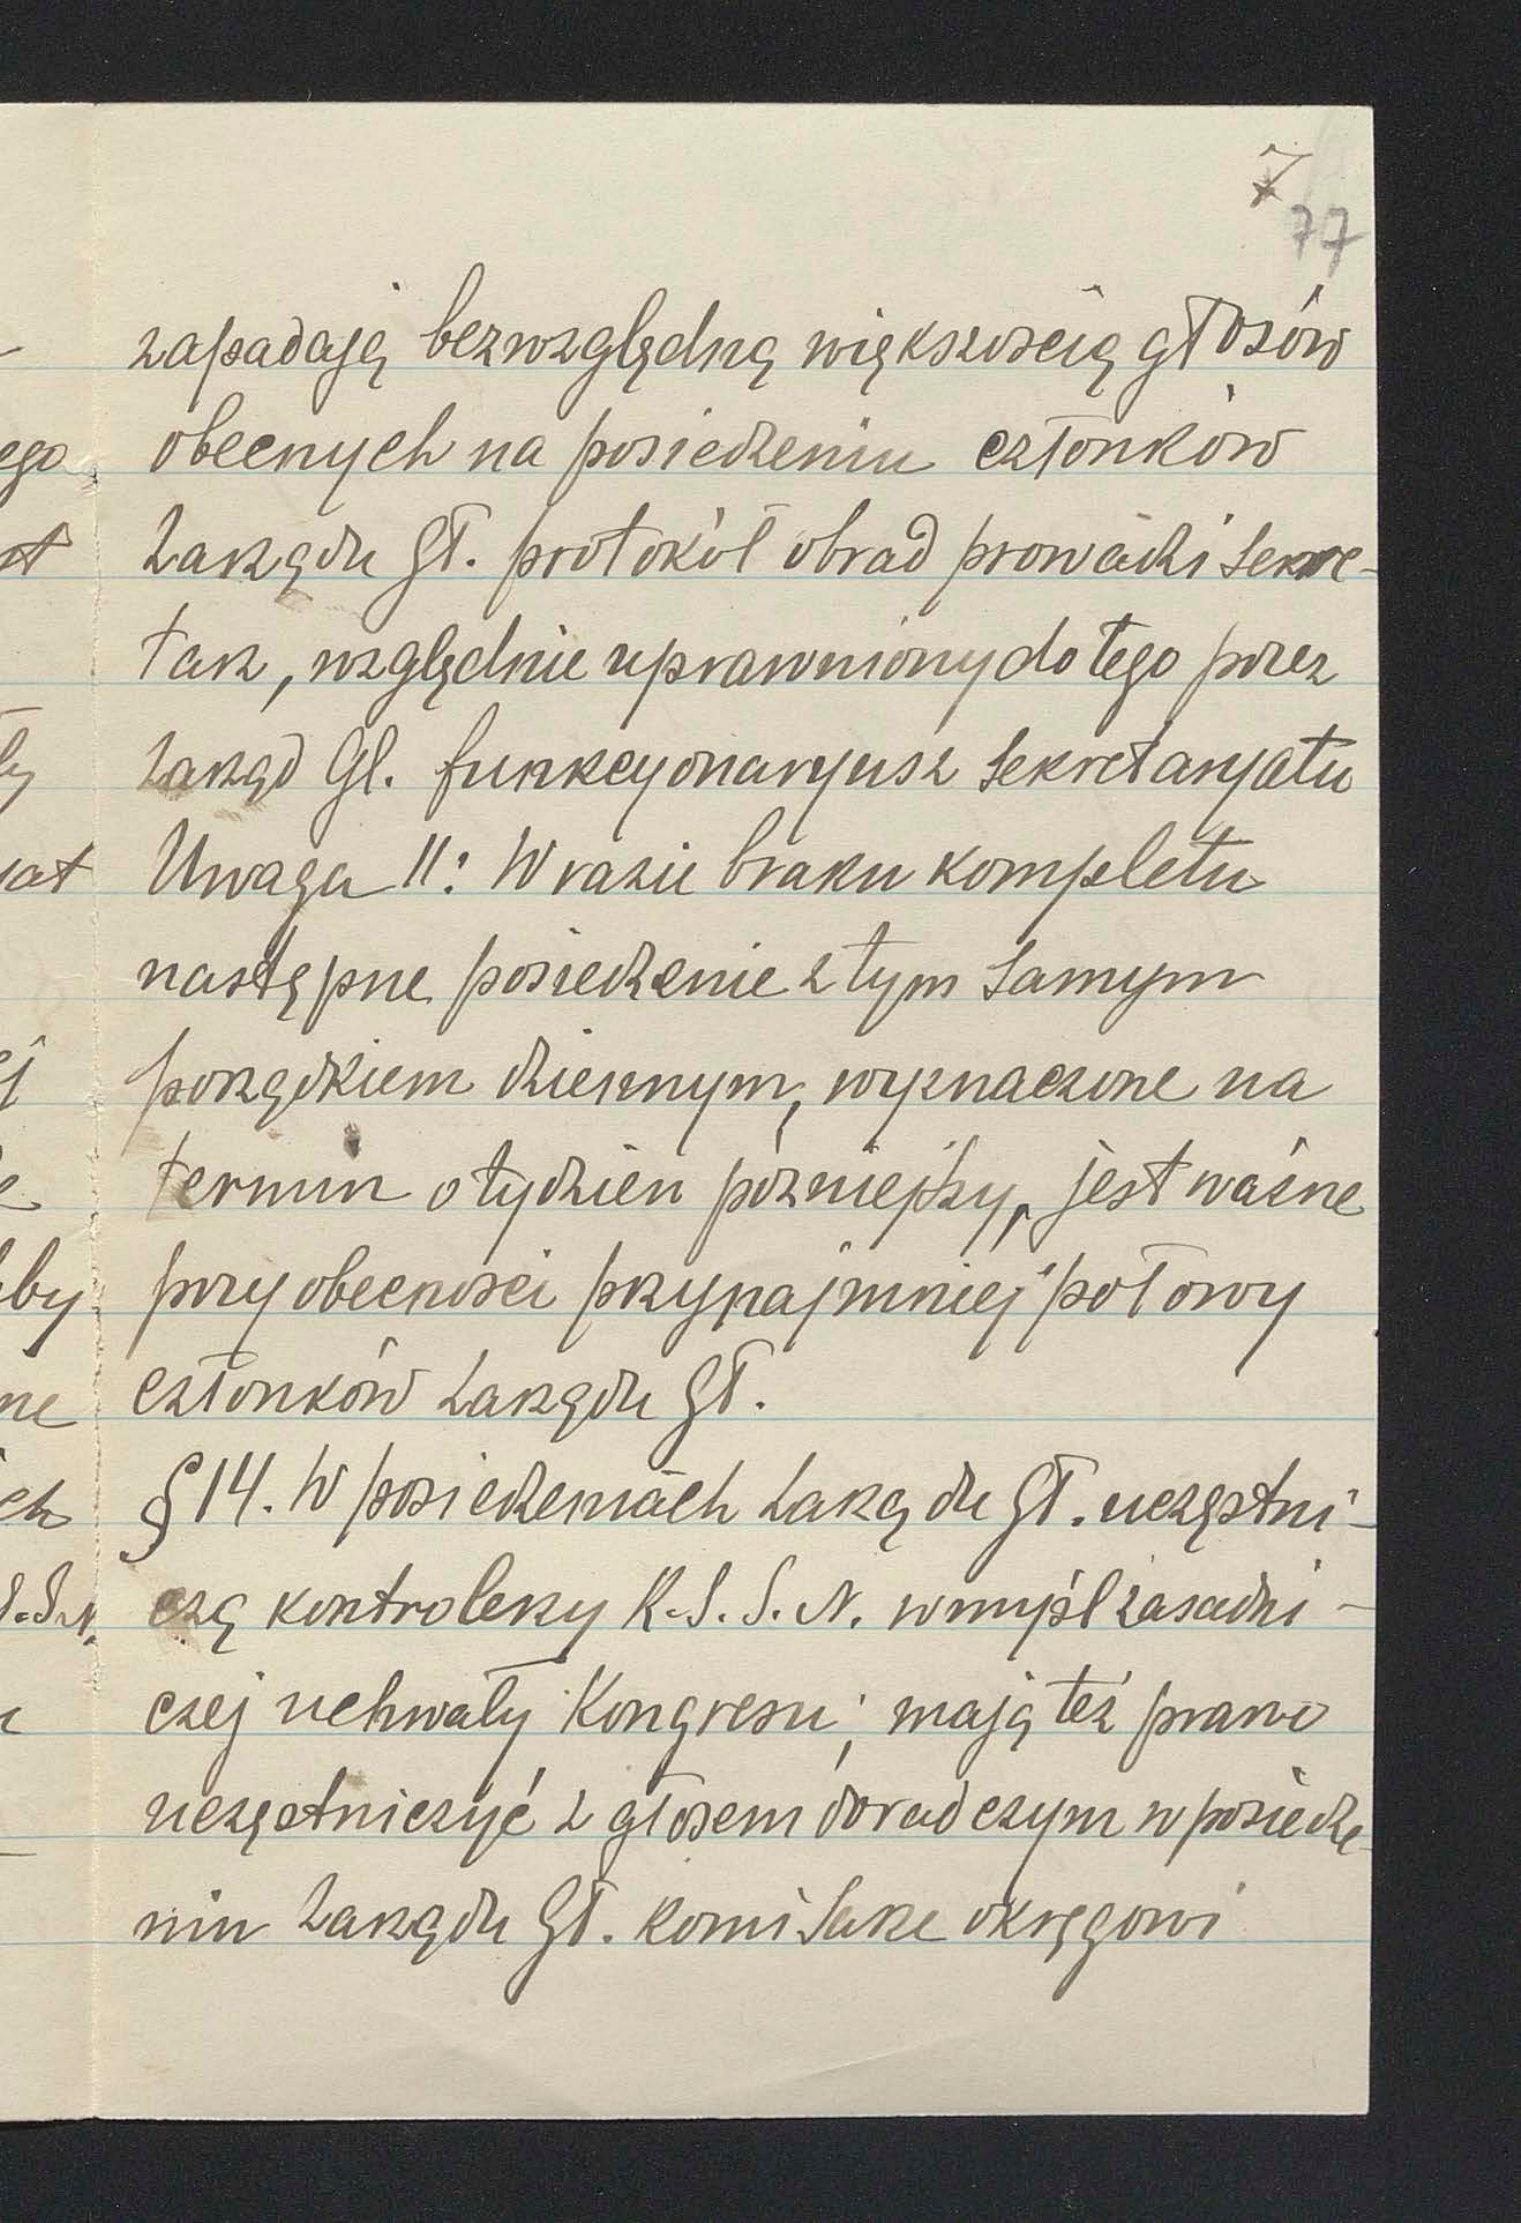 7
77
zapadają bezwzględną większością głosów
obecnych na posiedzeniu członków
Zarządu Gł. protokół obrad prowadzi Sekre-
tarz, względnie uprawniony do tego przez
Zarząd Gł. funkcyonaryusz Sekretaryatu
Uwaga II: W razie braku kompletu
następne posiedzenie z tym samym
porządkiem dziennym, wyznaczone na
termin o tydzień późniejszy, jest ważne
przy obecności przynajmniej połowy
członków Zarządu Gł.
§ 14. W posiedzeniach Zarządu Gł. uczestni-
czą kontrolerzy K.S.S.N. w myśl zasadni-
czej uchwały Kongresu; mają też prawo
uczęstniczyć z głosem doradczym w posiedze-
niu Zarządu Gł. komisarze okręgowi
ego
by
ne
ch